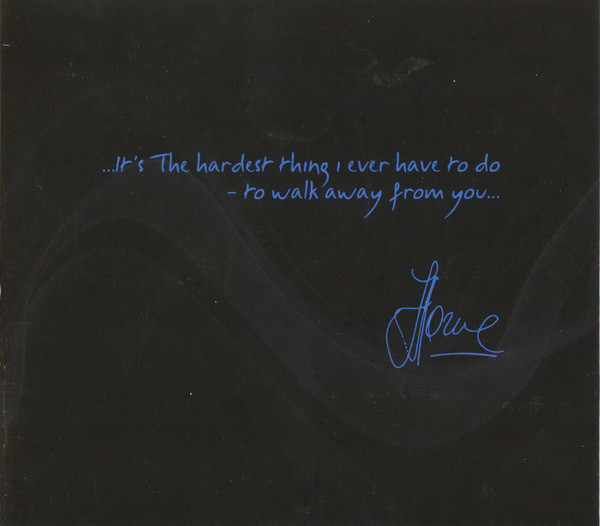 ...It's The hardest thing I ever have to do
- to walk away from you...